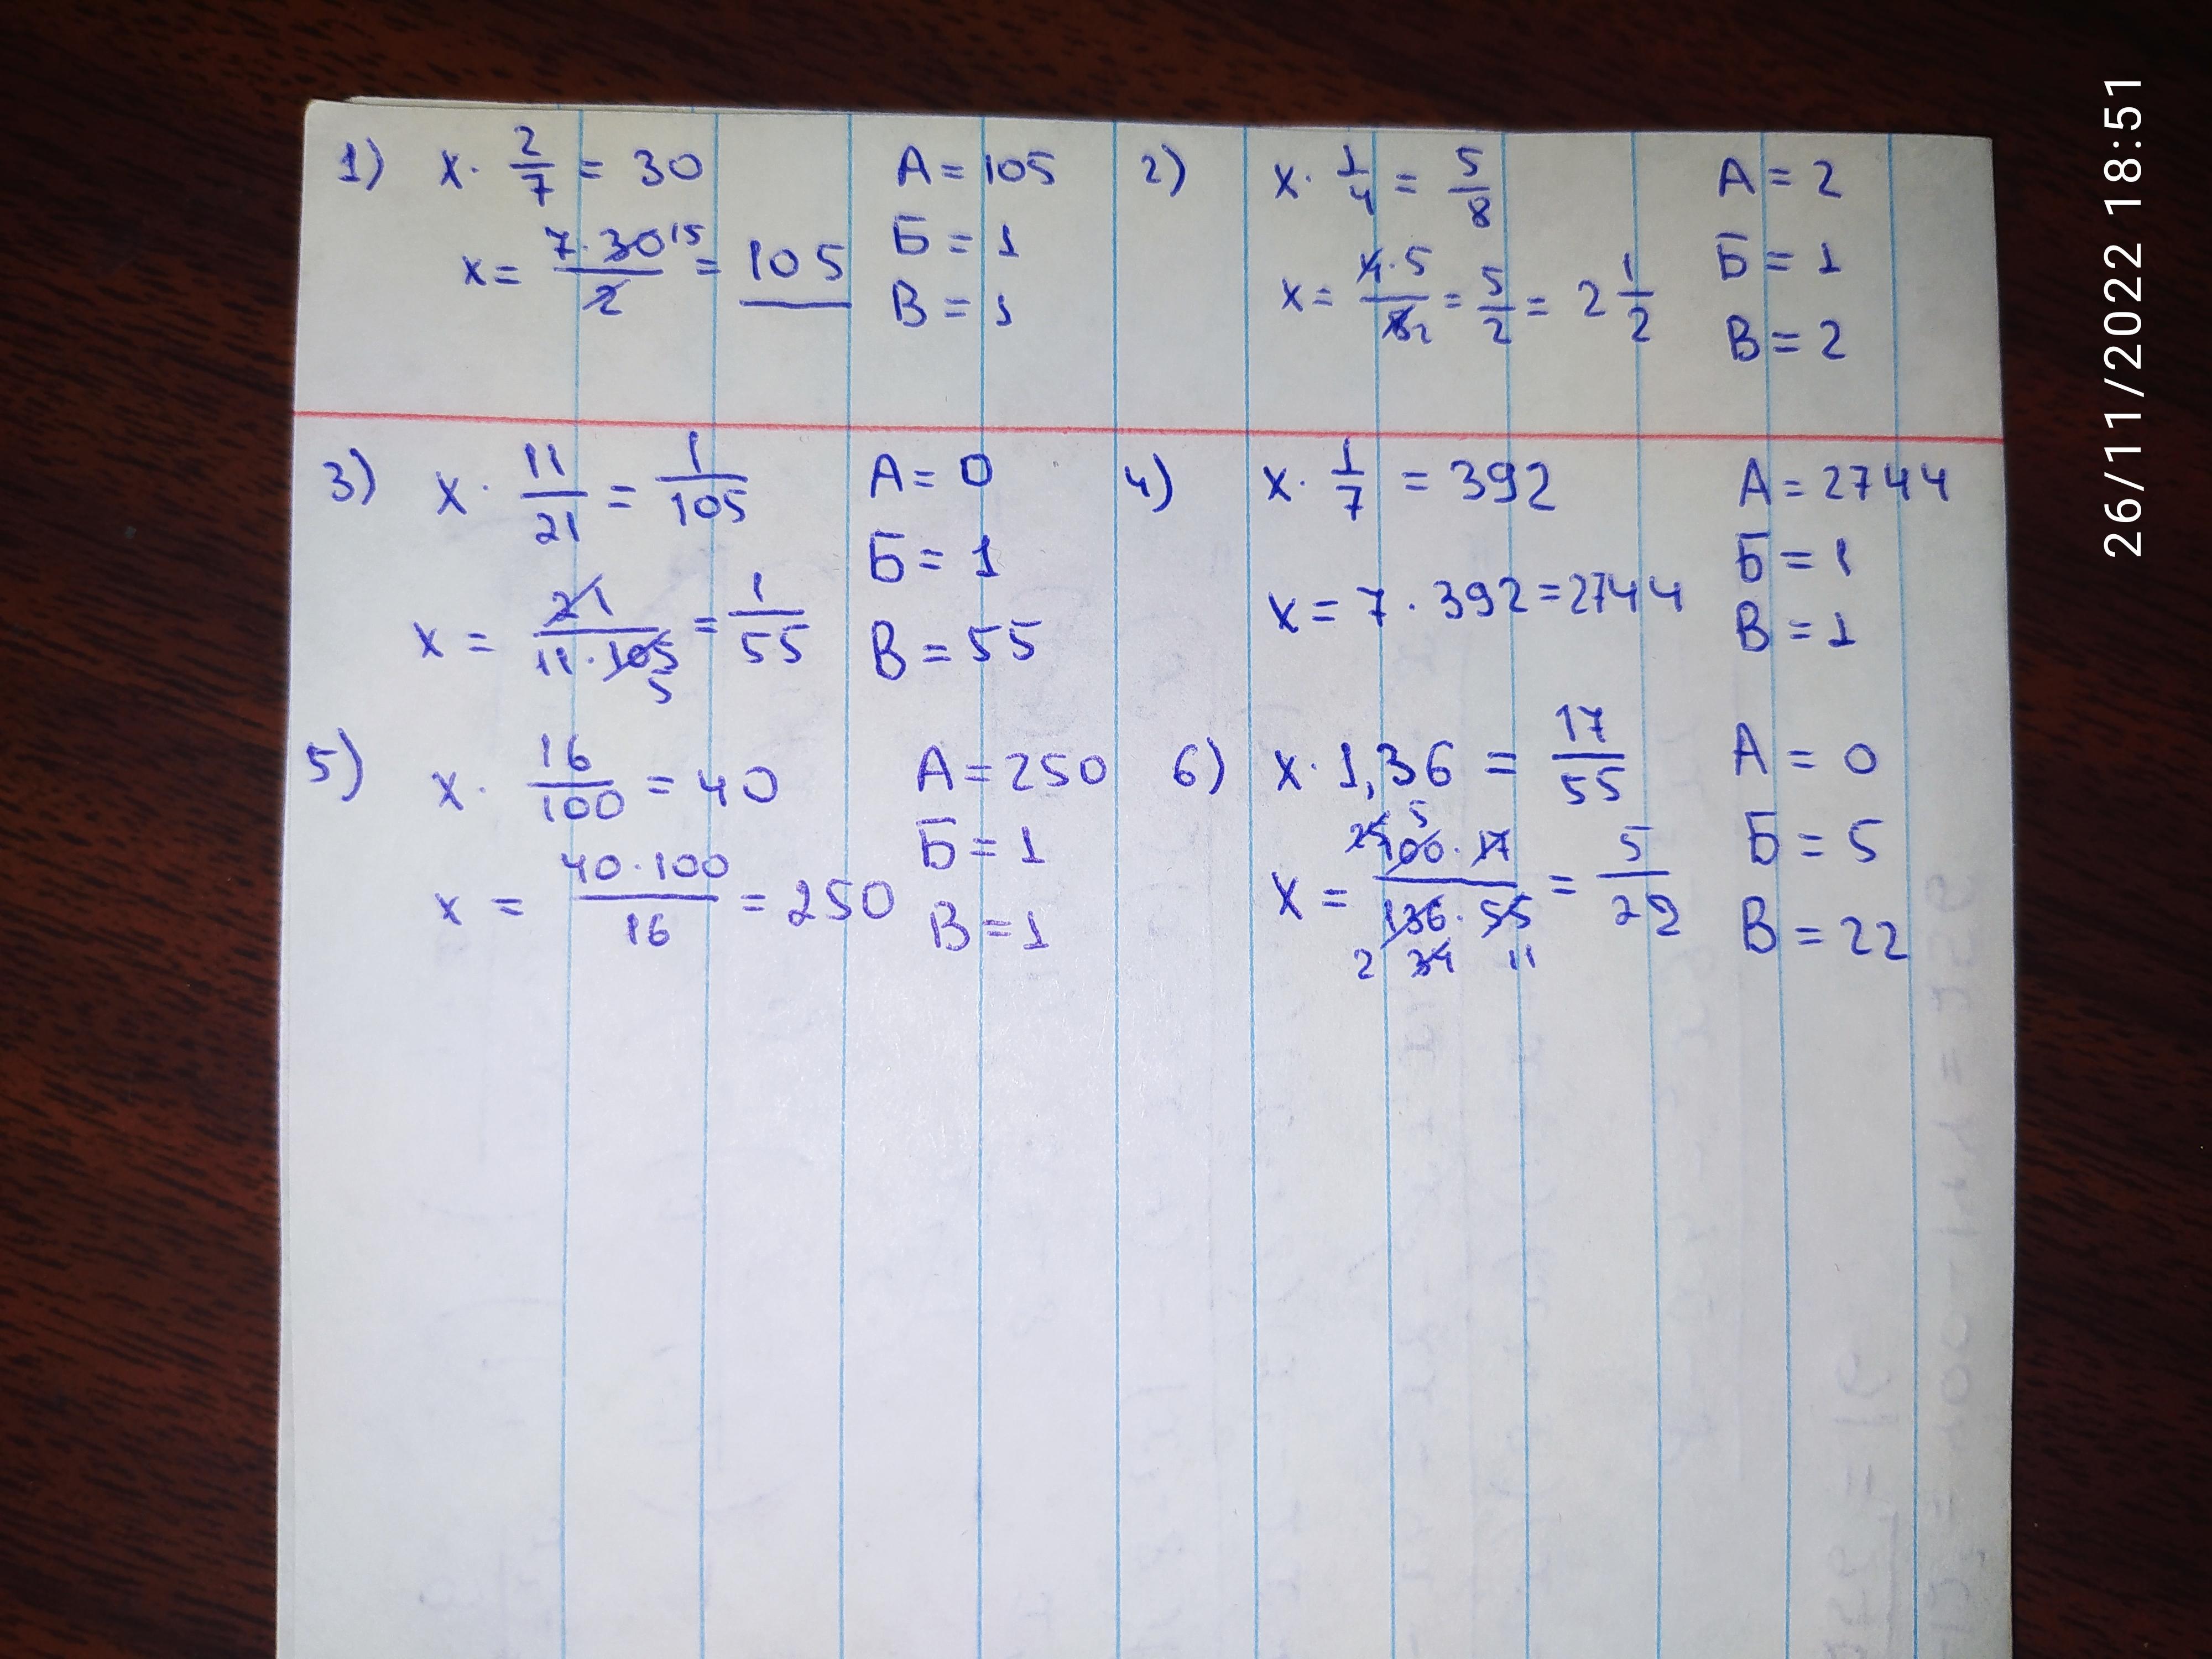 1) x · 2/7 = 30
x = 7·30 15/2 = 105
А = 105
Б = 1
В = 1
2) x · 1/4 = 5/8
x = 4·5/8 2 = 5/2 = 2 1/2
А = 2
Б = 1
В = 2
3) x · 11/21 = 1/105
x = 21/11·105 5 = 1/55
А = 0
Б = 1
В = 55
4) x · 1/7 = 392
x = 7 · 392 = 2744
А = 2744
Б = 1
В = 1
5) x · 16/100 = 40
x = 40·100/16 = 250
А = 250
Б = 1
В = 1
6) x · 1,36 = 17/55
x = 25 5 100 · 17/136 · 55 2 34 11 = 5/22
А = 0
Б = 5
В = 22
26/11/2022 18:51